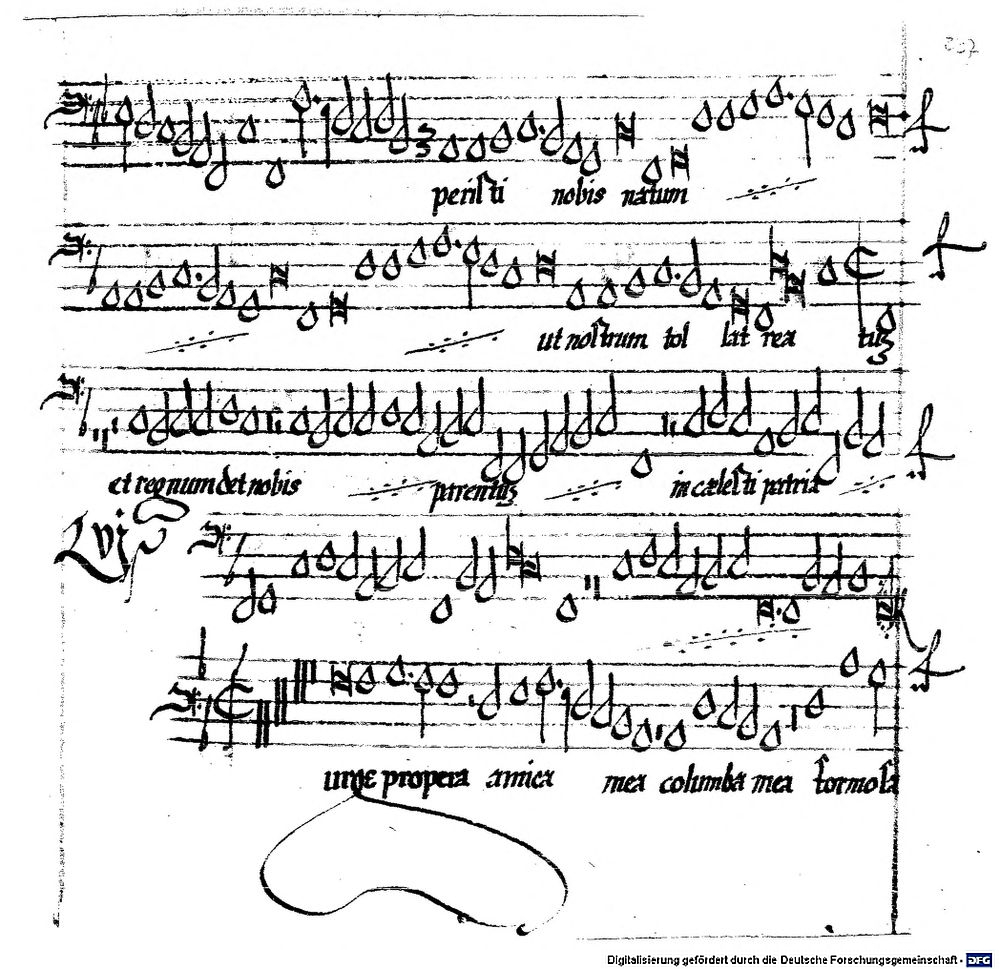 237
peristi nobis natum
ut nostrum tol lat rea tus
et regnum det nobis parentum in cælesti patria
urge propera amica mea columba mea formosa
Digitalisierung gefördert durch die Deutsche Forschungsgemeinschaft - DFG